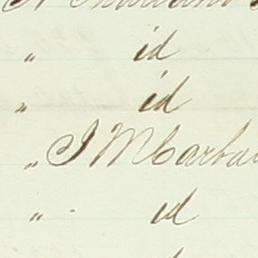 " id
" id
" J M Carba
" id